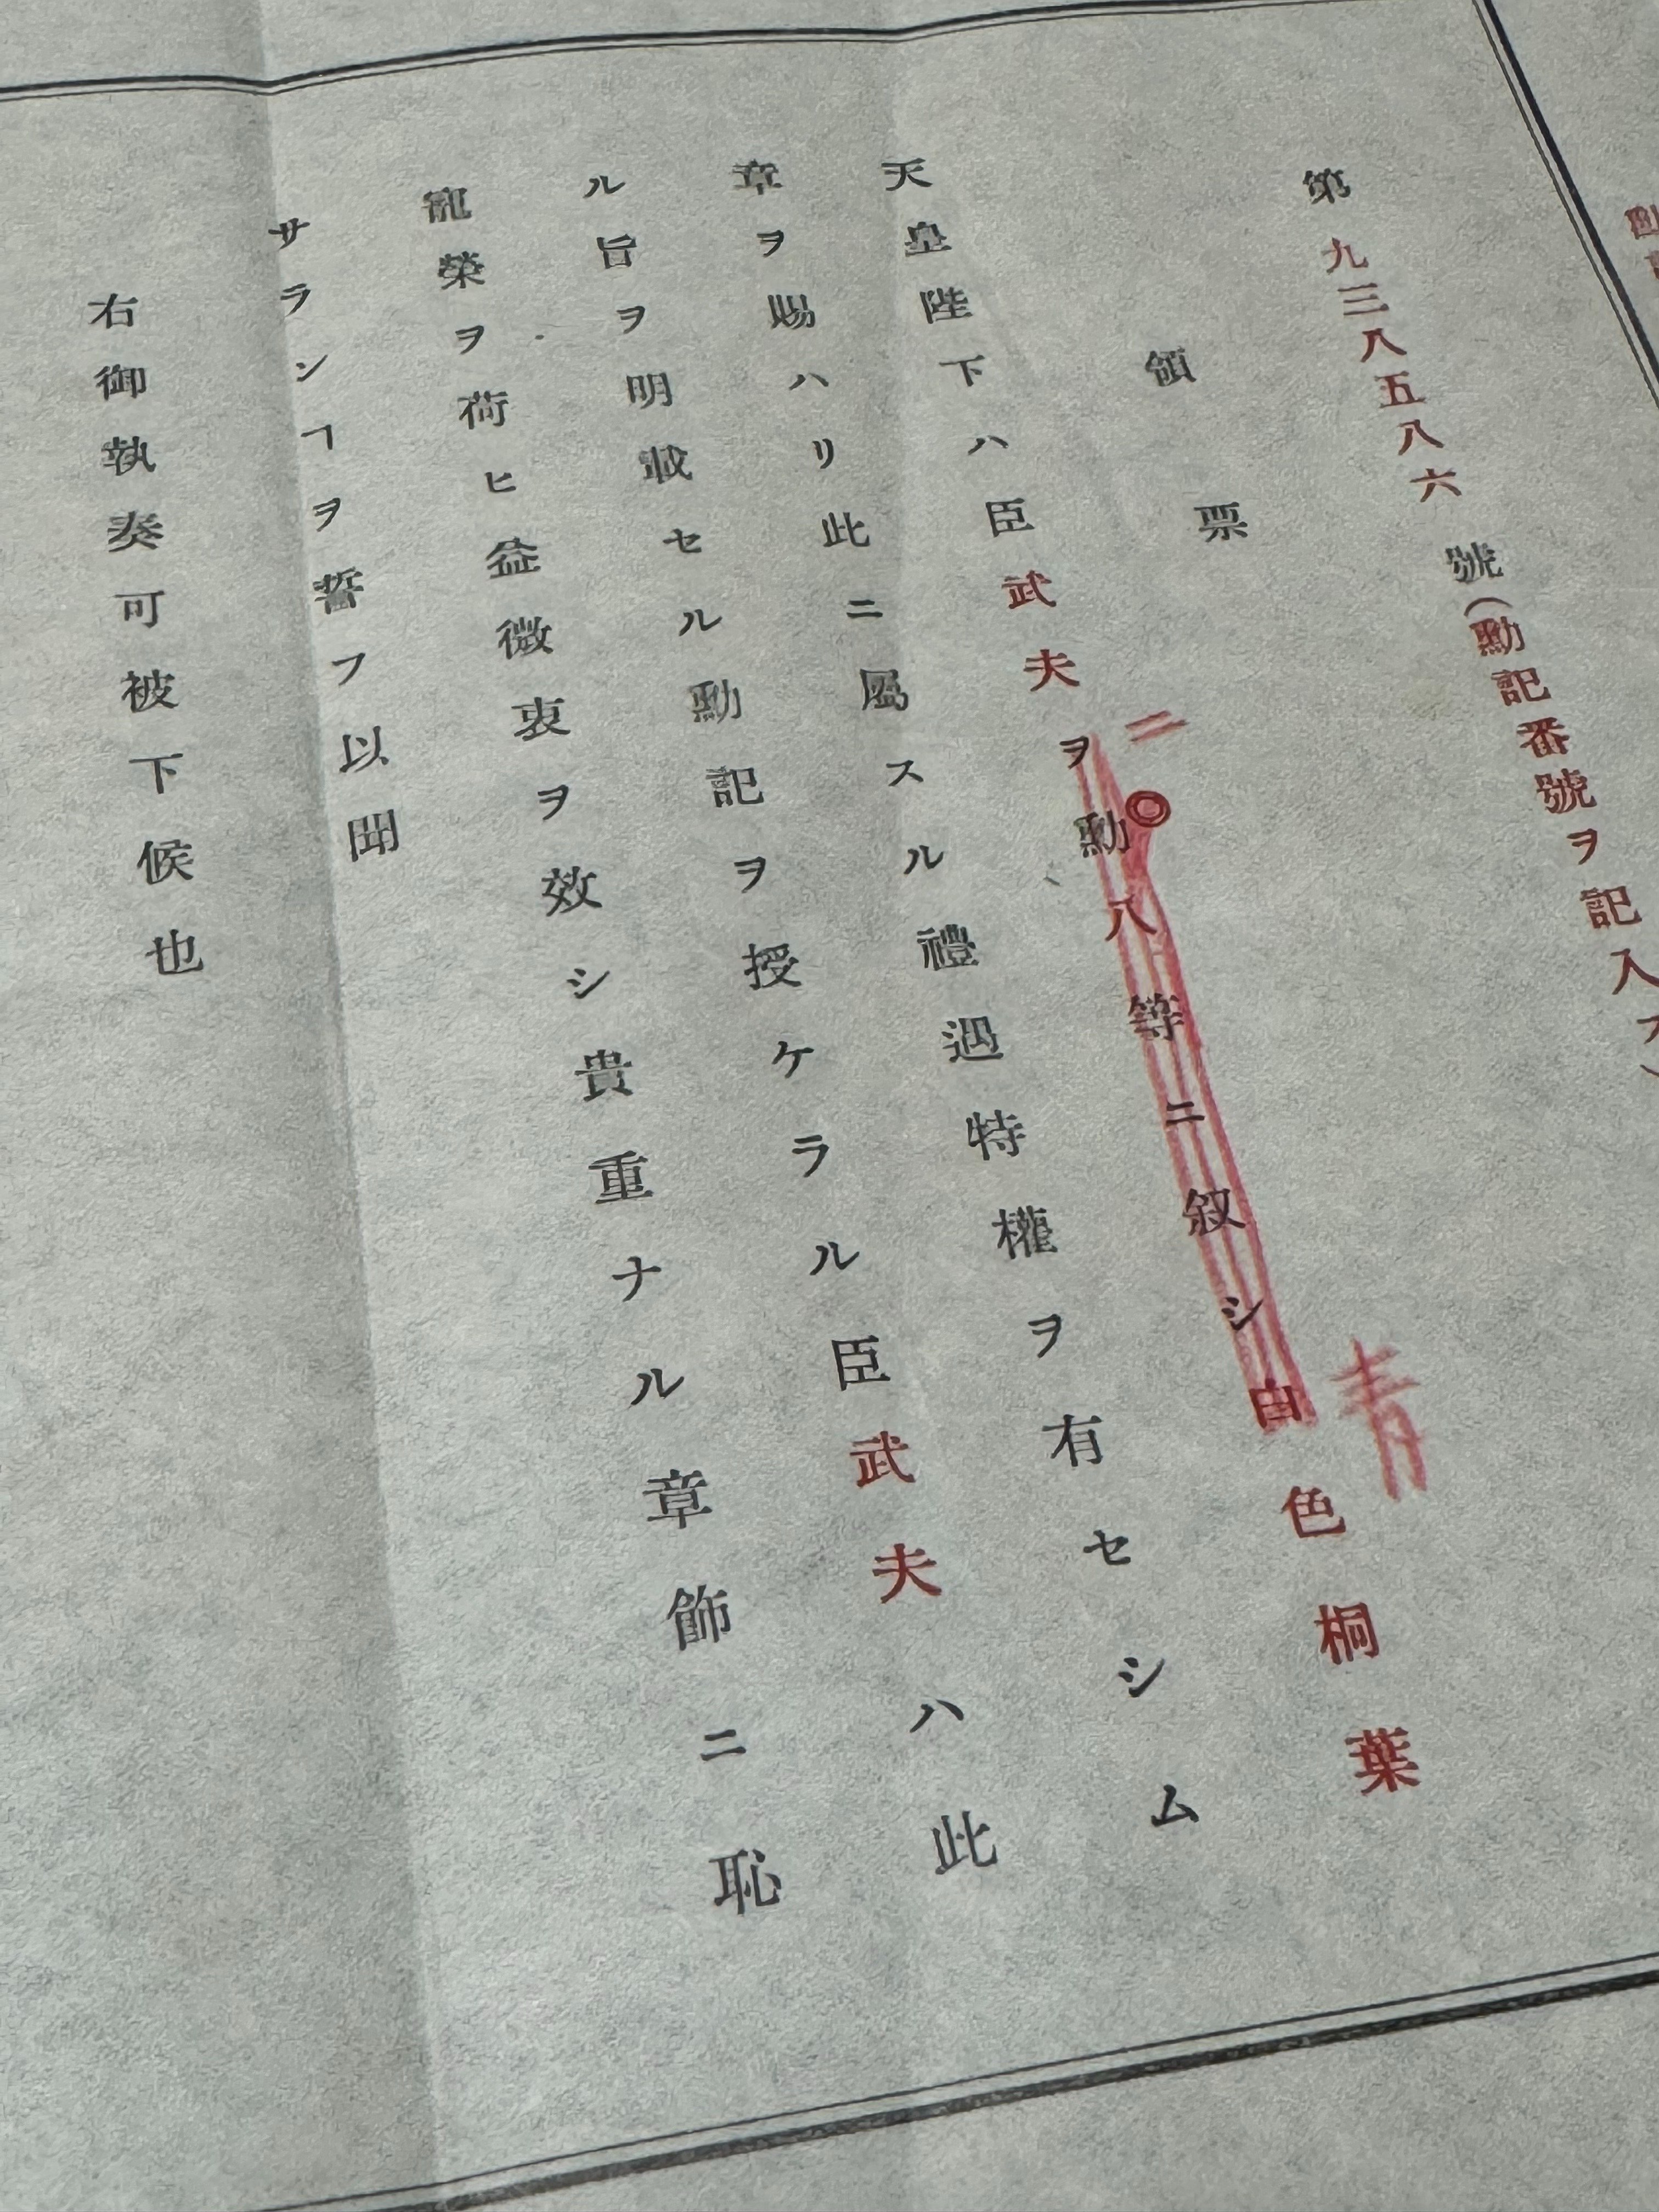 第九三八五八六號(勳記番號ヲ記入
領票
天皇陛下ハ臣武夫ヲ勳八等ニ敍シ白色桐葉
ニ
青
章ヲ賜ハリ此ニ屬スル禮遇特權ヲ有セシム
ル旨ヲ明載セル勳記ヲ授ケラル臣武夫ハ此
寵榮ヲ荷ヒ益微衷ヲ效シ貴重ナル章飾ニ恥
サランヿヲ誓フ以聞
右御執奏可被下候也